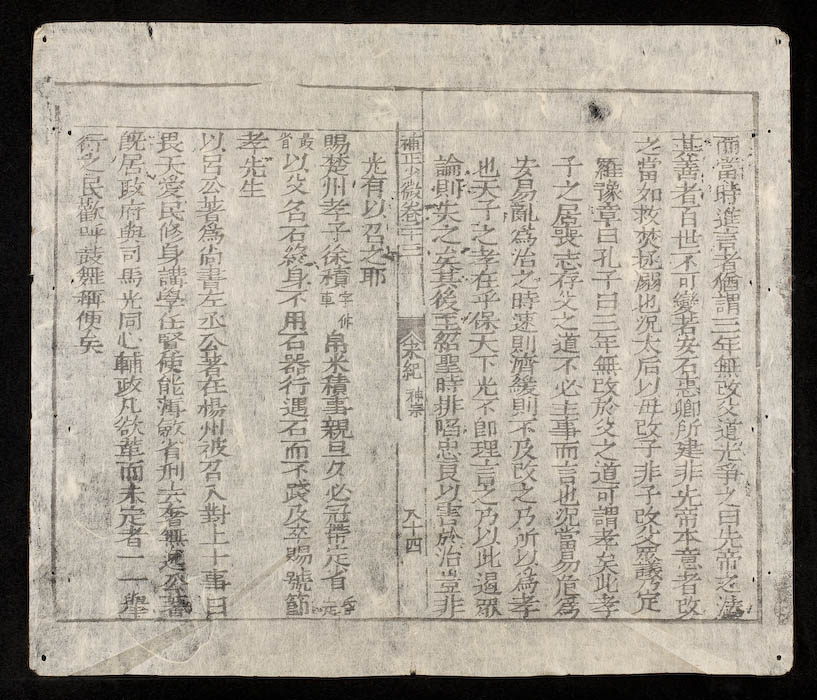 而當時進言者猶謂三年無改父道光爭之曰先帝之法
其善者百世不可變若安石惠卿所建非先帝本意者改
之當如救焚拯溺也況太后以母改子非子改父衆議乃定
羅豫章曰孔子曰三年無改於父之道可謂孝矣此孝
子之居喪志存父之道不必主事而言也況當易危爲
安易亂爲治之時速則濟緩則不及改之乃所以爲孝
也天子之孝在乎保天下光不卽理言之乃以此遏眾
論則失之矣其後至紹聖時排陷忠良以害於治豈非
補正少微卷二十三 宋紀 神宗 八十四
光有以召之耶
賜楚州孝子徐積字仲車帛米積事親旦夕必冠帶定省昏定
最省以父名石終身不用石器行遇石而不踐及卒賜號節
孝先生
以呂公著爲尙書左丞公著在楊州被召入對上十事曰
畏天愛民修身講學任賢使能薄斂省刑去奢無逸公著
旣居政府與司馬光同心輔政凡欲革而未定者一一舉
行之民歡呼鼓舞稱便矣